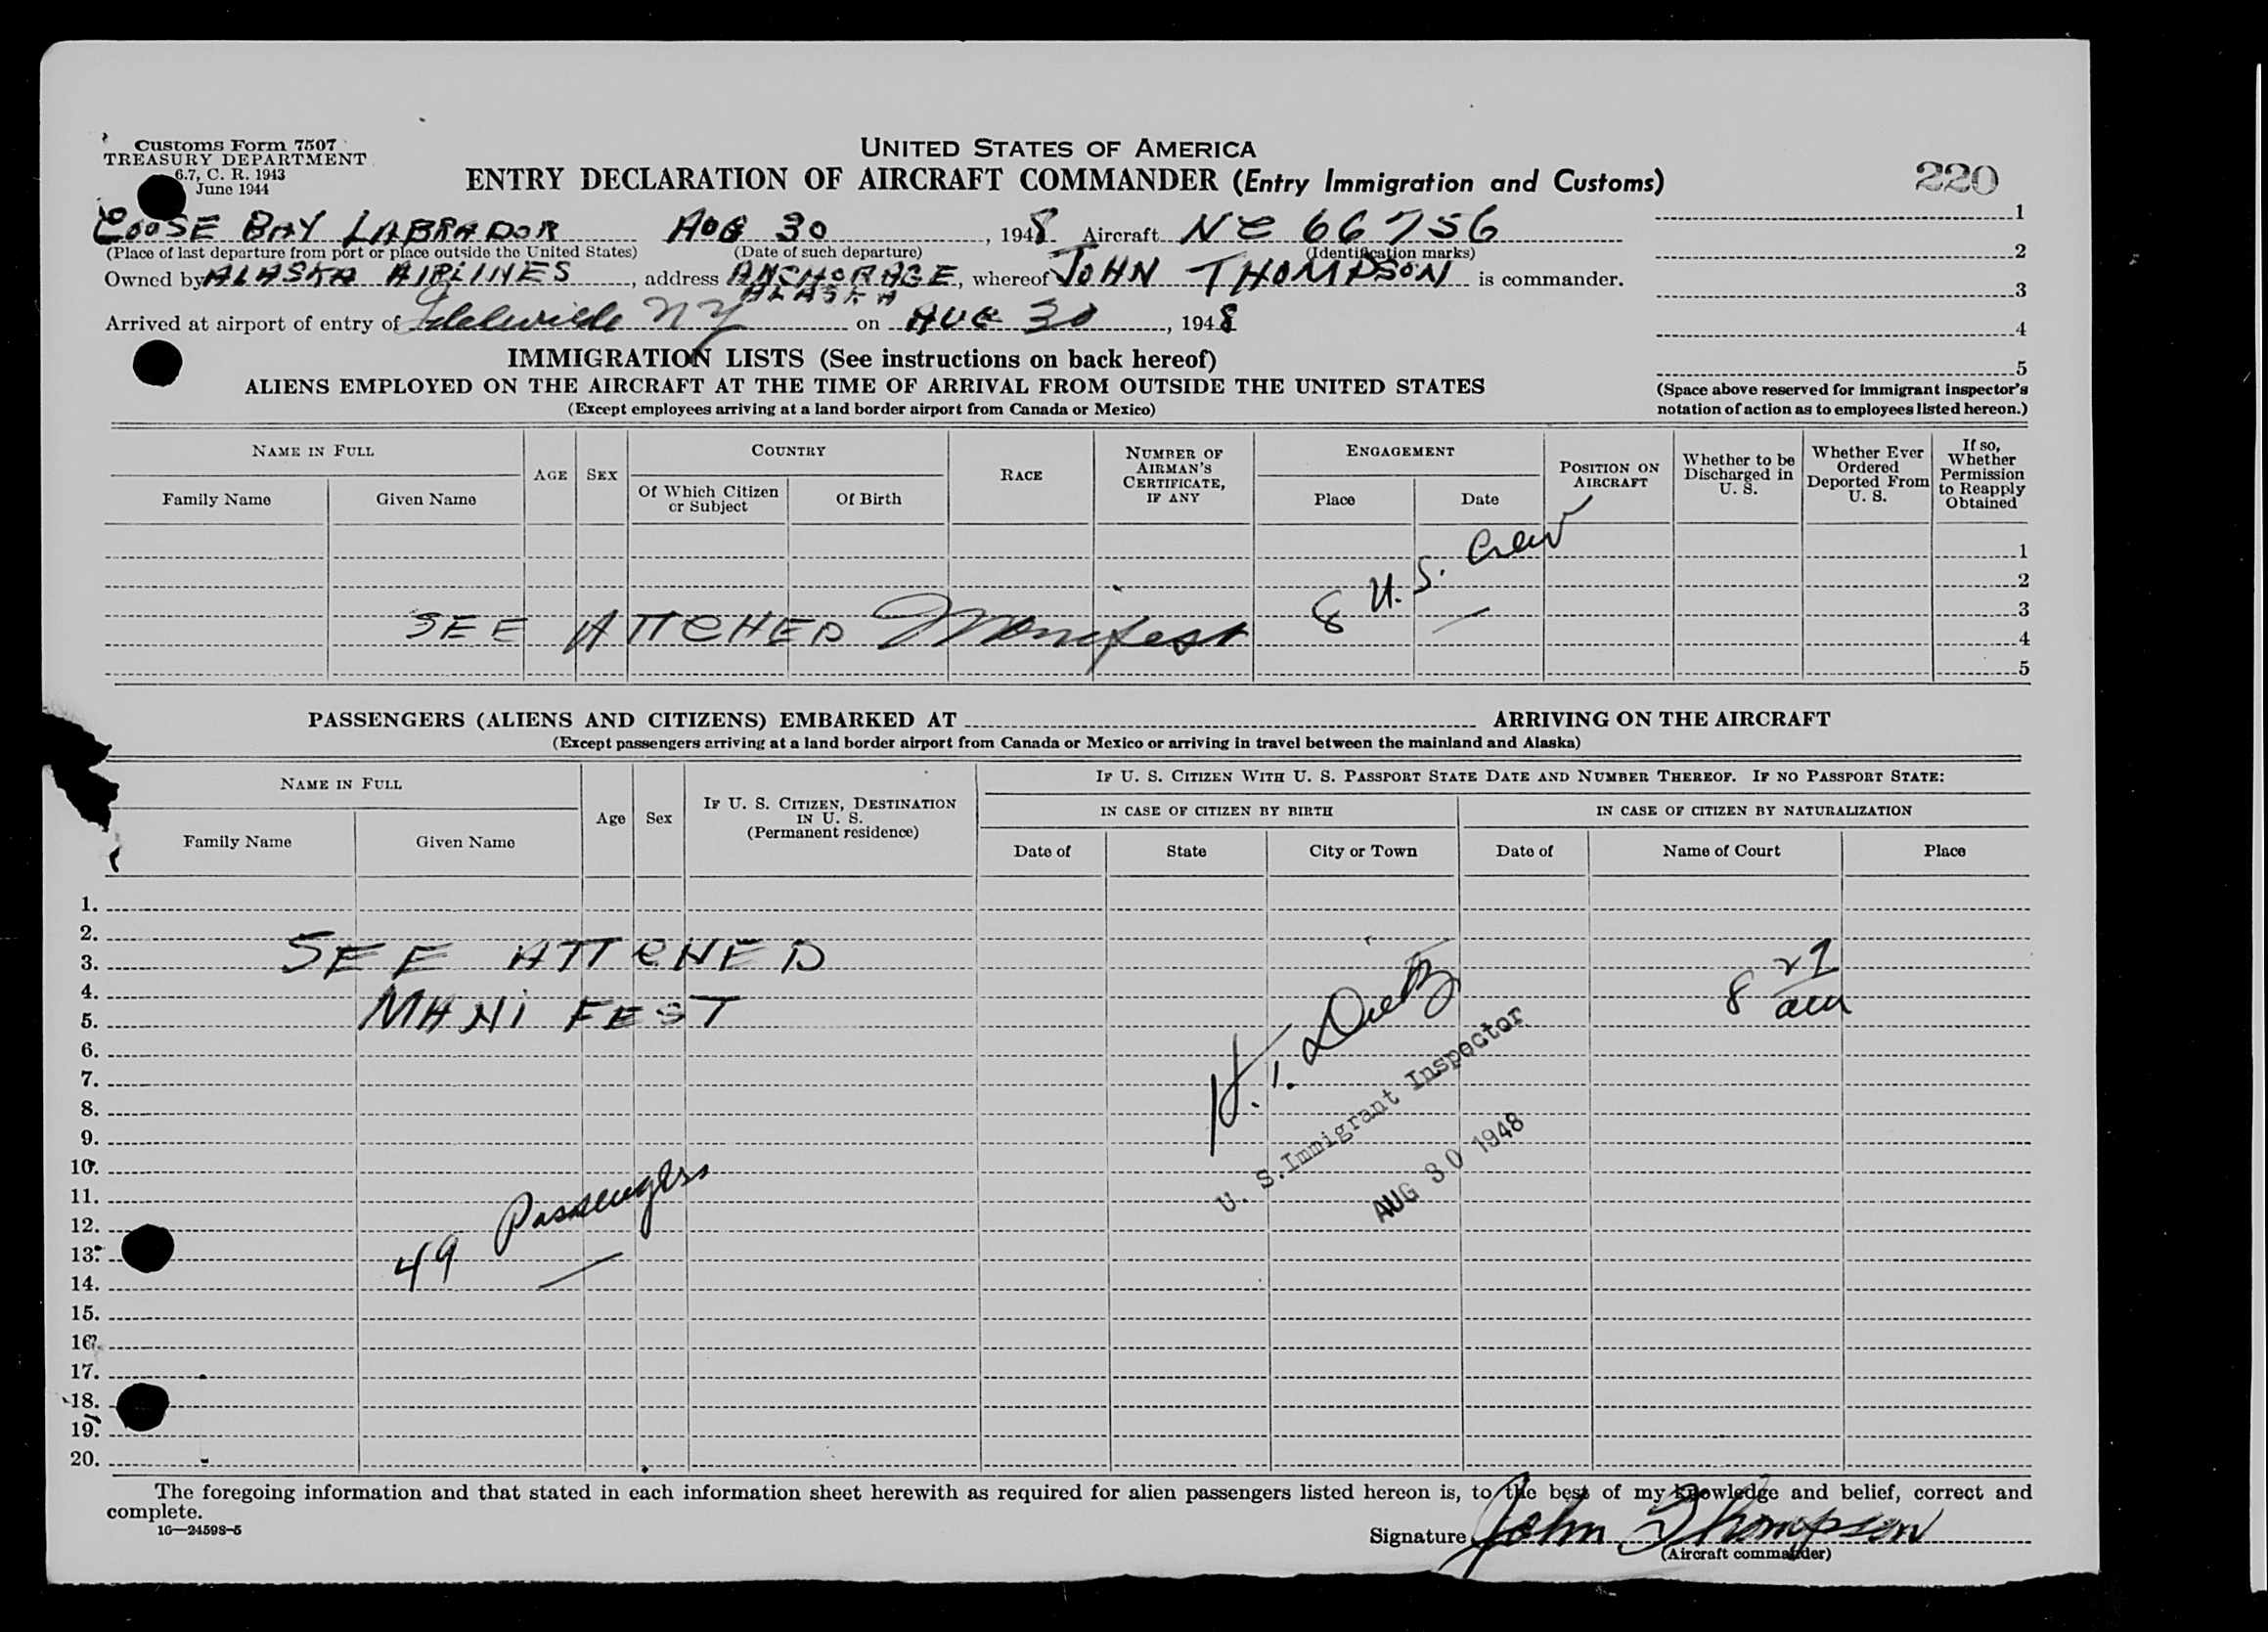 Customs Form 7507
TREASURY DEPARTMENT
6.7, C. R. 1943
June 1944
UNITED STATES OF AMERICA
ENTRY DECLARATION OF AIRCRAFT COMMANDER (Entry Immigration and Customs)
220
GOOSE BAY LABRADOR AUG 30, 1948 Aircraft NC 66756
(Place of last departure from port or place outside the United States) (Date of such departure) (Identification marks)
Owned by ALASKA AIRLINES, address ANCHORAGE, whereof JOHN THOMPSON is commander.
ALASKA
Arrived at airport of entry of Idlewilde NY on AUG 30, 1948
1
2
3
4
5
(Space above reserved for immigrant inspector's
notation of action as to employees listed hereon.)
IMMIGRATION LISTS (See instructions on back hereof)
ALIENS EMPLOYED ON THE AIRCRAFT AT THE TIME OF ARRIVAL FROM OUTSIDE THE UNITED STATES
(Except employees arriving at a land border airport from Canada or Mexico)
NAME IN FULL
Family Name
Given Name
AGE
SEX
COUNTRY
Of Which Citizen
or Subject
Of Birth
RACE
NUMBER OF
AIRMAN'S
CERTIFICATE,
IF ANY
ENGAGEMENT
Place
Date
POSITION ON
AIRCRAFT
Whether to be
Discharged in
U. S.
Whether Ever
Ordered
Deported From
U. S.
If so,
Whether
Permission
to Reapply
Obtained
1
2
3
4
5
SEE ATTCHED Manifest
8 U.S. Crew
PASSENGERS (ALIENS AND CITIZENS) EMBARKED AT ARRIVING ON THE AIRCRAFT
(Except passengers arriving at a land border airport from Canada or Mexico or arriving in travel between the mainland and Alaska)
NAME IN FULL
Family Name
Given Name
Age
Sex
IF U. S. CITIZEN, DESTINATION
IN U. S.
(Permanent residence)
IF U. S. CITIZEN WITH U. S. PASSPORT STATE DATE AND NUMBER THEREOF. IF NO PASSPORT STATE:
IN CASE OF CITIZEN BY BIRTH
IN CASE OF CITIZEN BY NATURALIZATION
Date of
State
City or Town
Date of
Name of Court
Place
1.
2.
3. SEE ATTCHED
4.
5. MANIFEST
6.
7.
8.
9.
10.
11.
12.
13.
14.
15.
16.
17.
18.
19.
20.
49 Passengers
8 27
am
H. I. Dietz
U. S. Immigrant Inspector
AUG 30 1948
The foregoing information and that stated in each information sheet herewith as required for alien passengers listed hereon is, to the best of my knowledge and belief, correct and
complete.
16—24598-5
Signature John Thompson
(Aircraft commander)